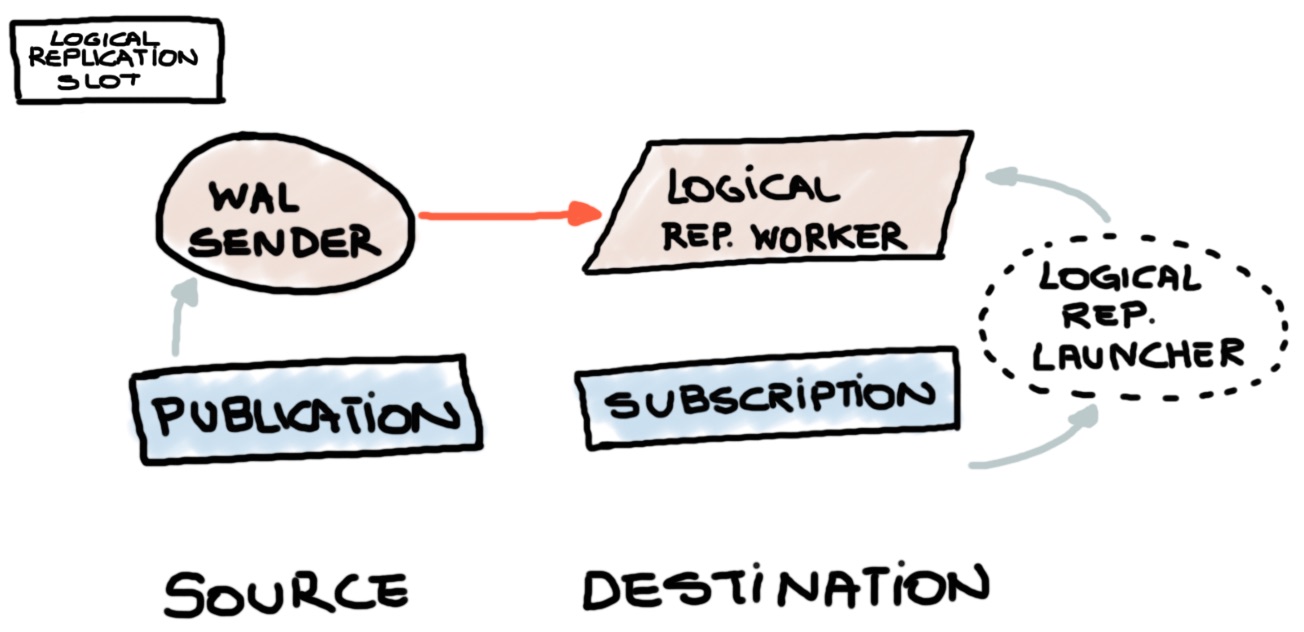 LOGICAL
REPLICATION
SLOT
WAL
SENDER
LOGICAL
REP. WORKER
LOGICAL
REP.
LAUNCHER
PUBLICATION
SUBSCRIPTION
SOURCE
DESTINATION